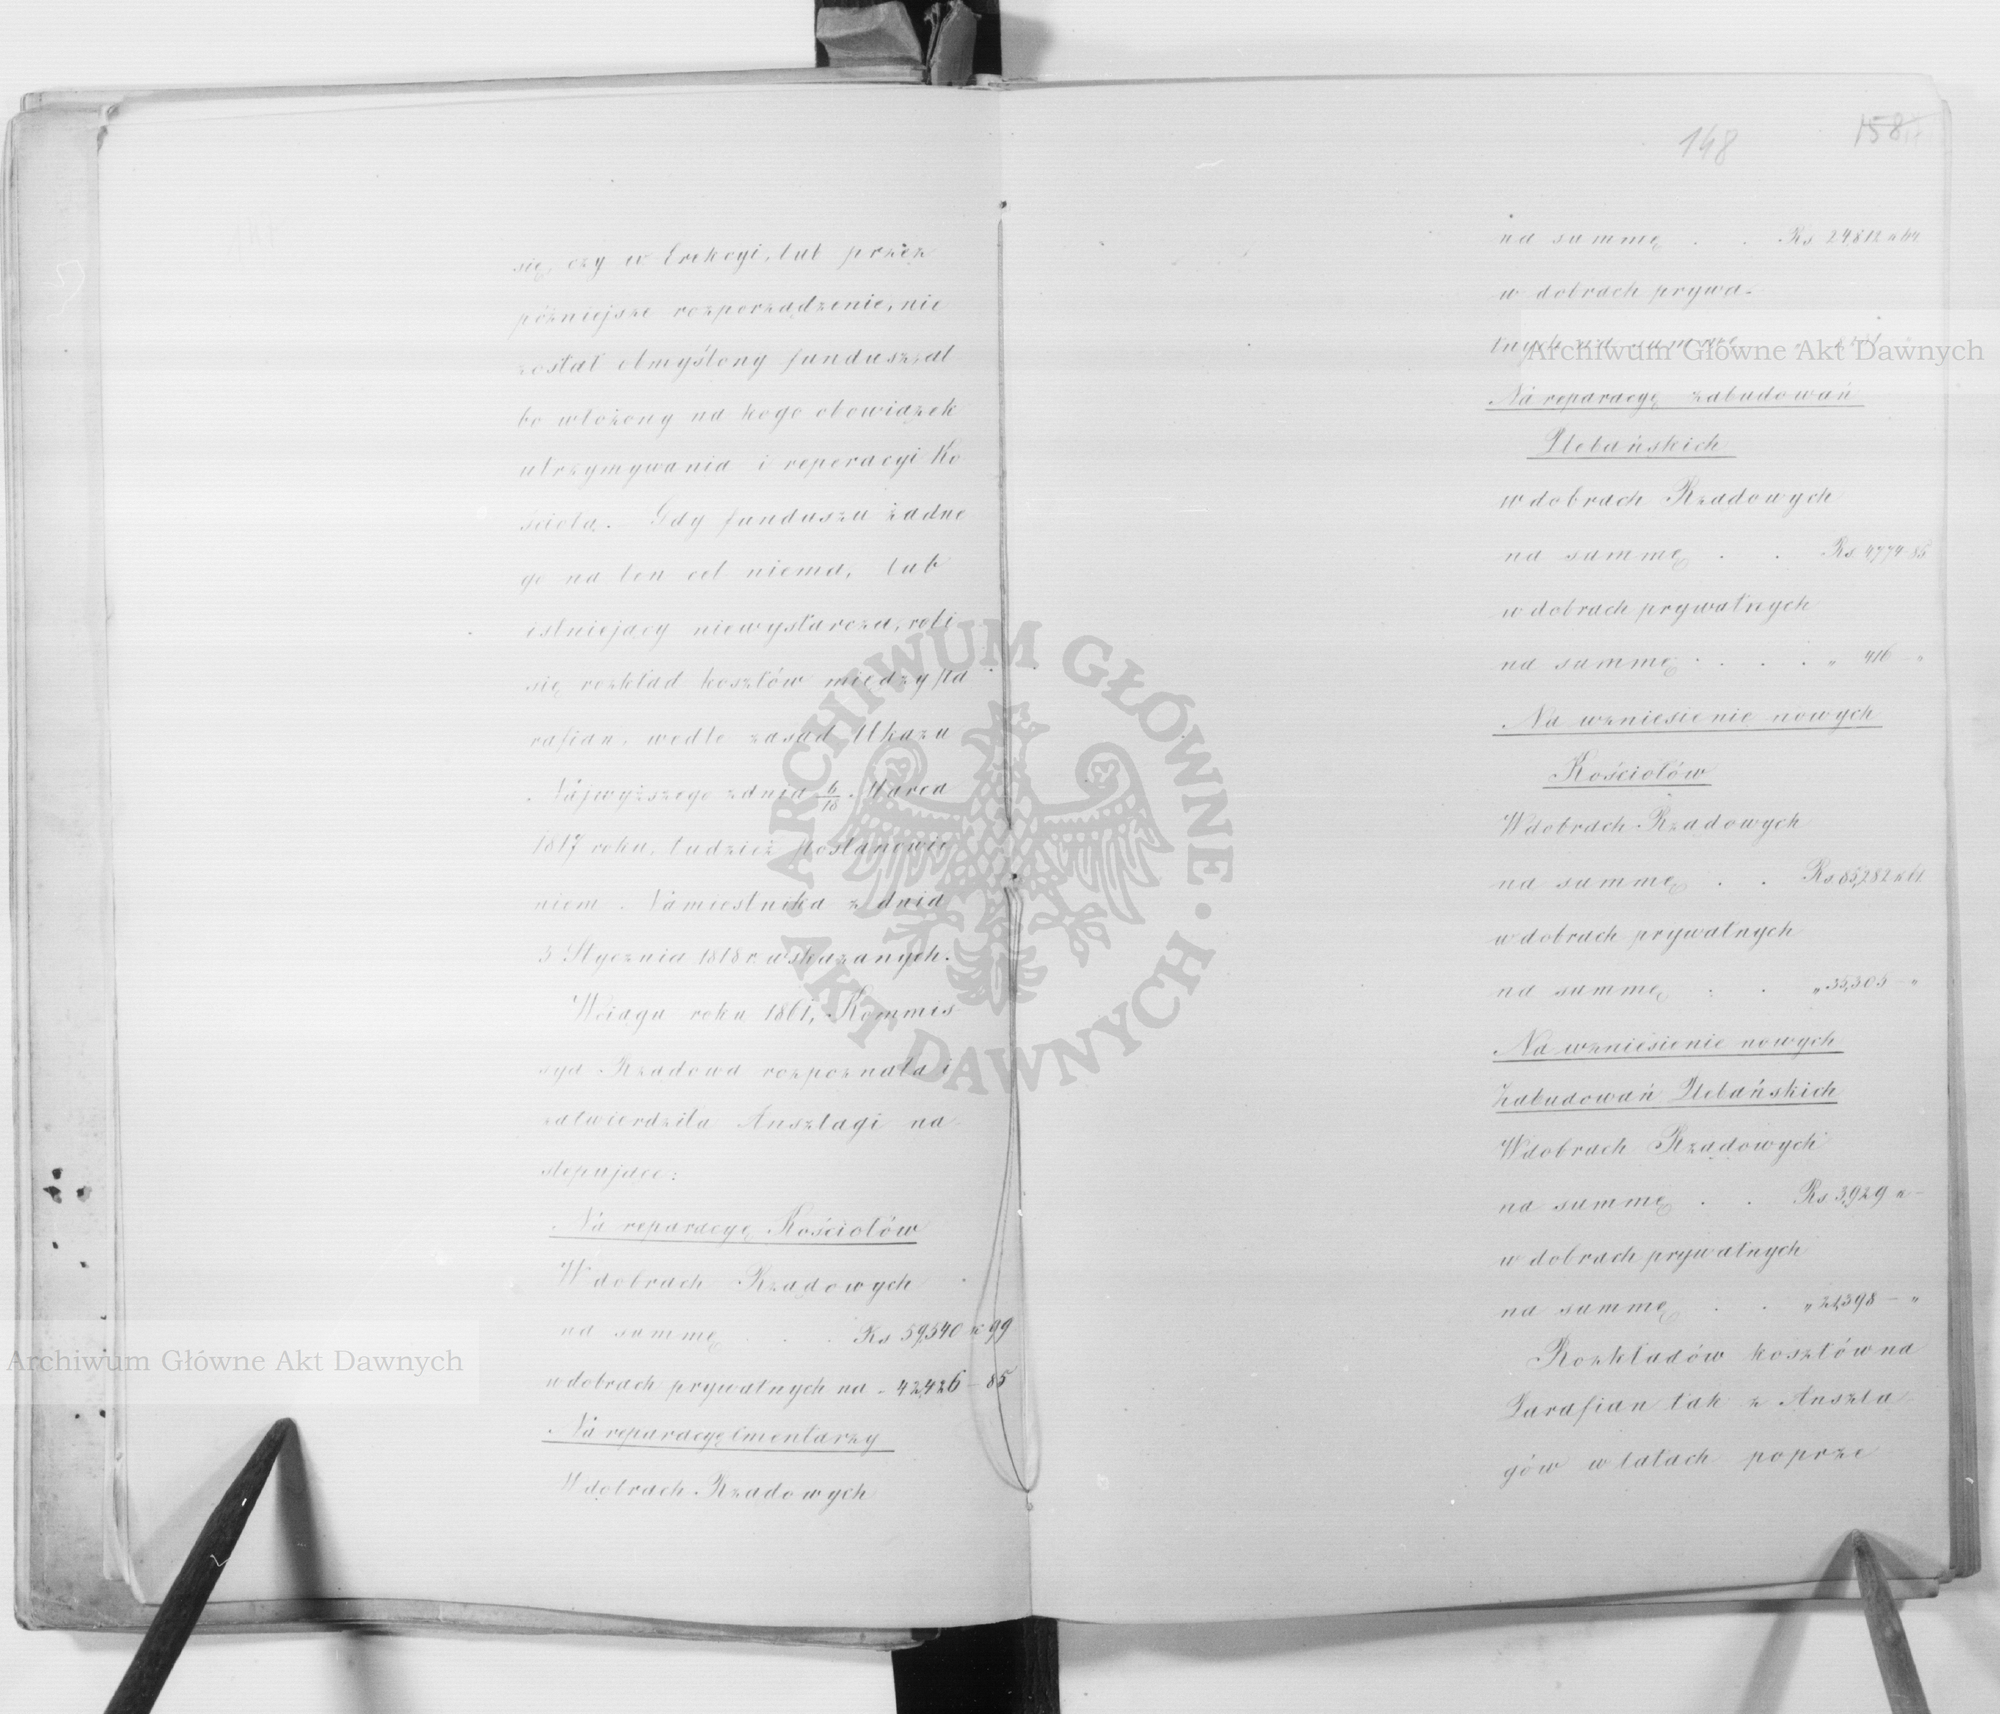 się, czy w Erekcyi, lub przez
późniejsze rozporządzenie, nie
został obmyślony fundusz, al
bo włożony na kogo obowiązek
utrzymywania i reperacyi Ko
ścioła. Gdy funduszu żadne
go na ten cel niema, lub
istniejący niewystarcza, robi
się rozkład kosztów między pa
rafian, wedle zasad Ukazu
Najwyższego z dnia 6/18 Marca
1817 roku, tudzież postanowie
niem Namiestnika z dnia
3 Stycznia 1818 r. wskazanych.
Wciągu roku 1861, Kommis
sya Rządowa rozpoznała i
zatwierdziła Anszlagi na
stępujące:
Na reparacyę Kościołów
W dobrach Rządowych
na summę . . . Rs 59,540 k 99
w dobrach prywatnych na - 42,426 - 85
Na reparacyę Cmentarzy
W dobrach Rządowych
148 158
na summę . . Rs 24812 k 64
w dobrach prywa-
tnych na summę
Na reparacyę zabudowań
Plebańskich
w dobrach Rządowych
na summę . . Rs. 4774 85
w dobrach prywatnych
na summę . . . . „ 416 „
Na wzniesienie nowych
Kościołów
W dobrach Rządowych
na summę . . Rs. 85,282 k 61
w dobrach prywatnych
na summę . . „ 35,305 - „
Na wzniesienie nowych
Zabudowań Plebańskich
W dobrach Rządowych
na summę . . Rs 3,929 k -
w dobrach prywatnych
na summę . . „ 21,398 - „
Rozkładów kosztów na
Parafian tak z Anszla
gów w latach poprze
Archiwum Główne Akt Dawnych
Archiwum Główne Akt Dawnych
ARCHIWUM GŁÓWNE
AKT DAWNYCH